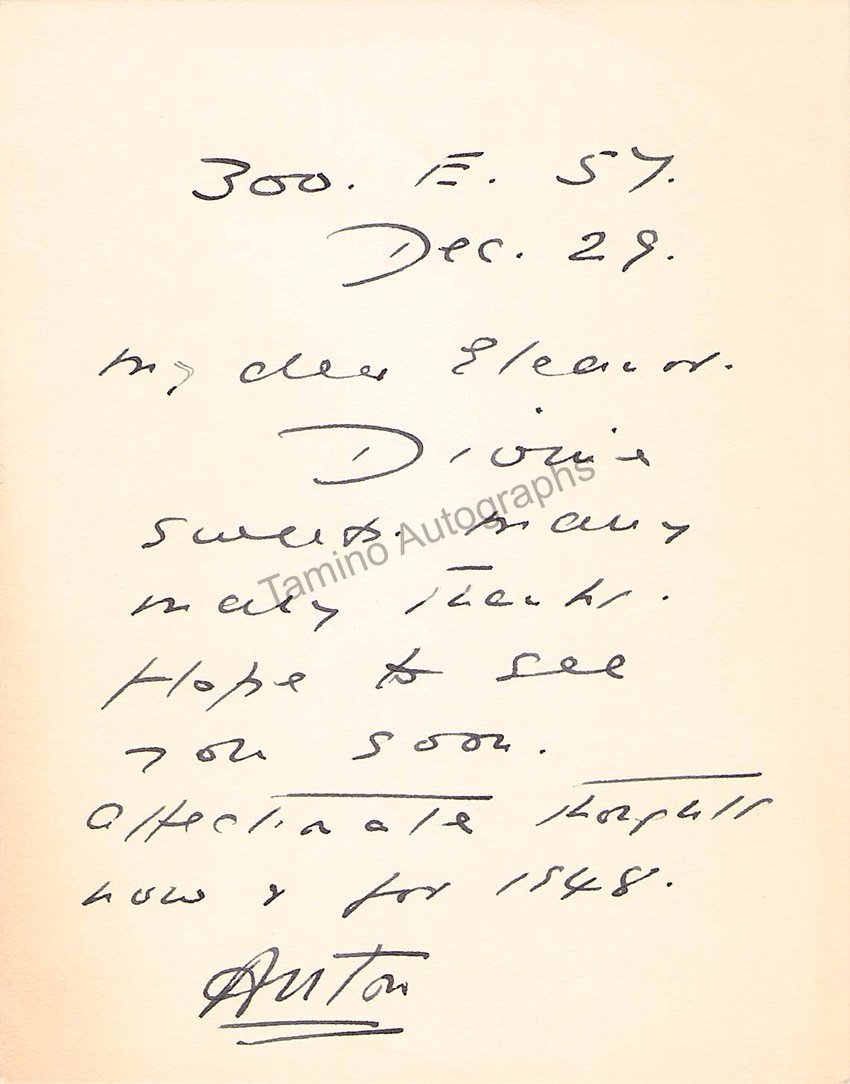 300. E. 57.
Dec. 29.
My dear Eleanor.
Divine
sweets. Many
many thanks.
Hope to see
you soon.
Affectionate thoughts
now & for 1948.
Anton
Tamino Autographs